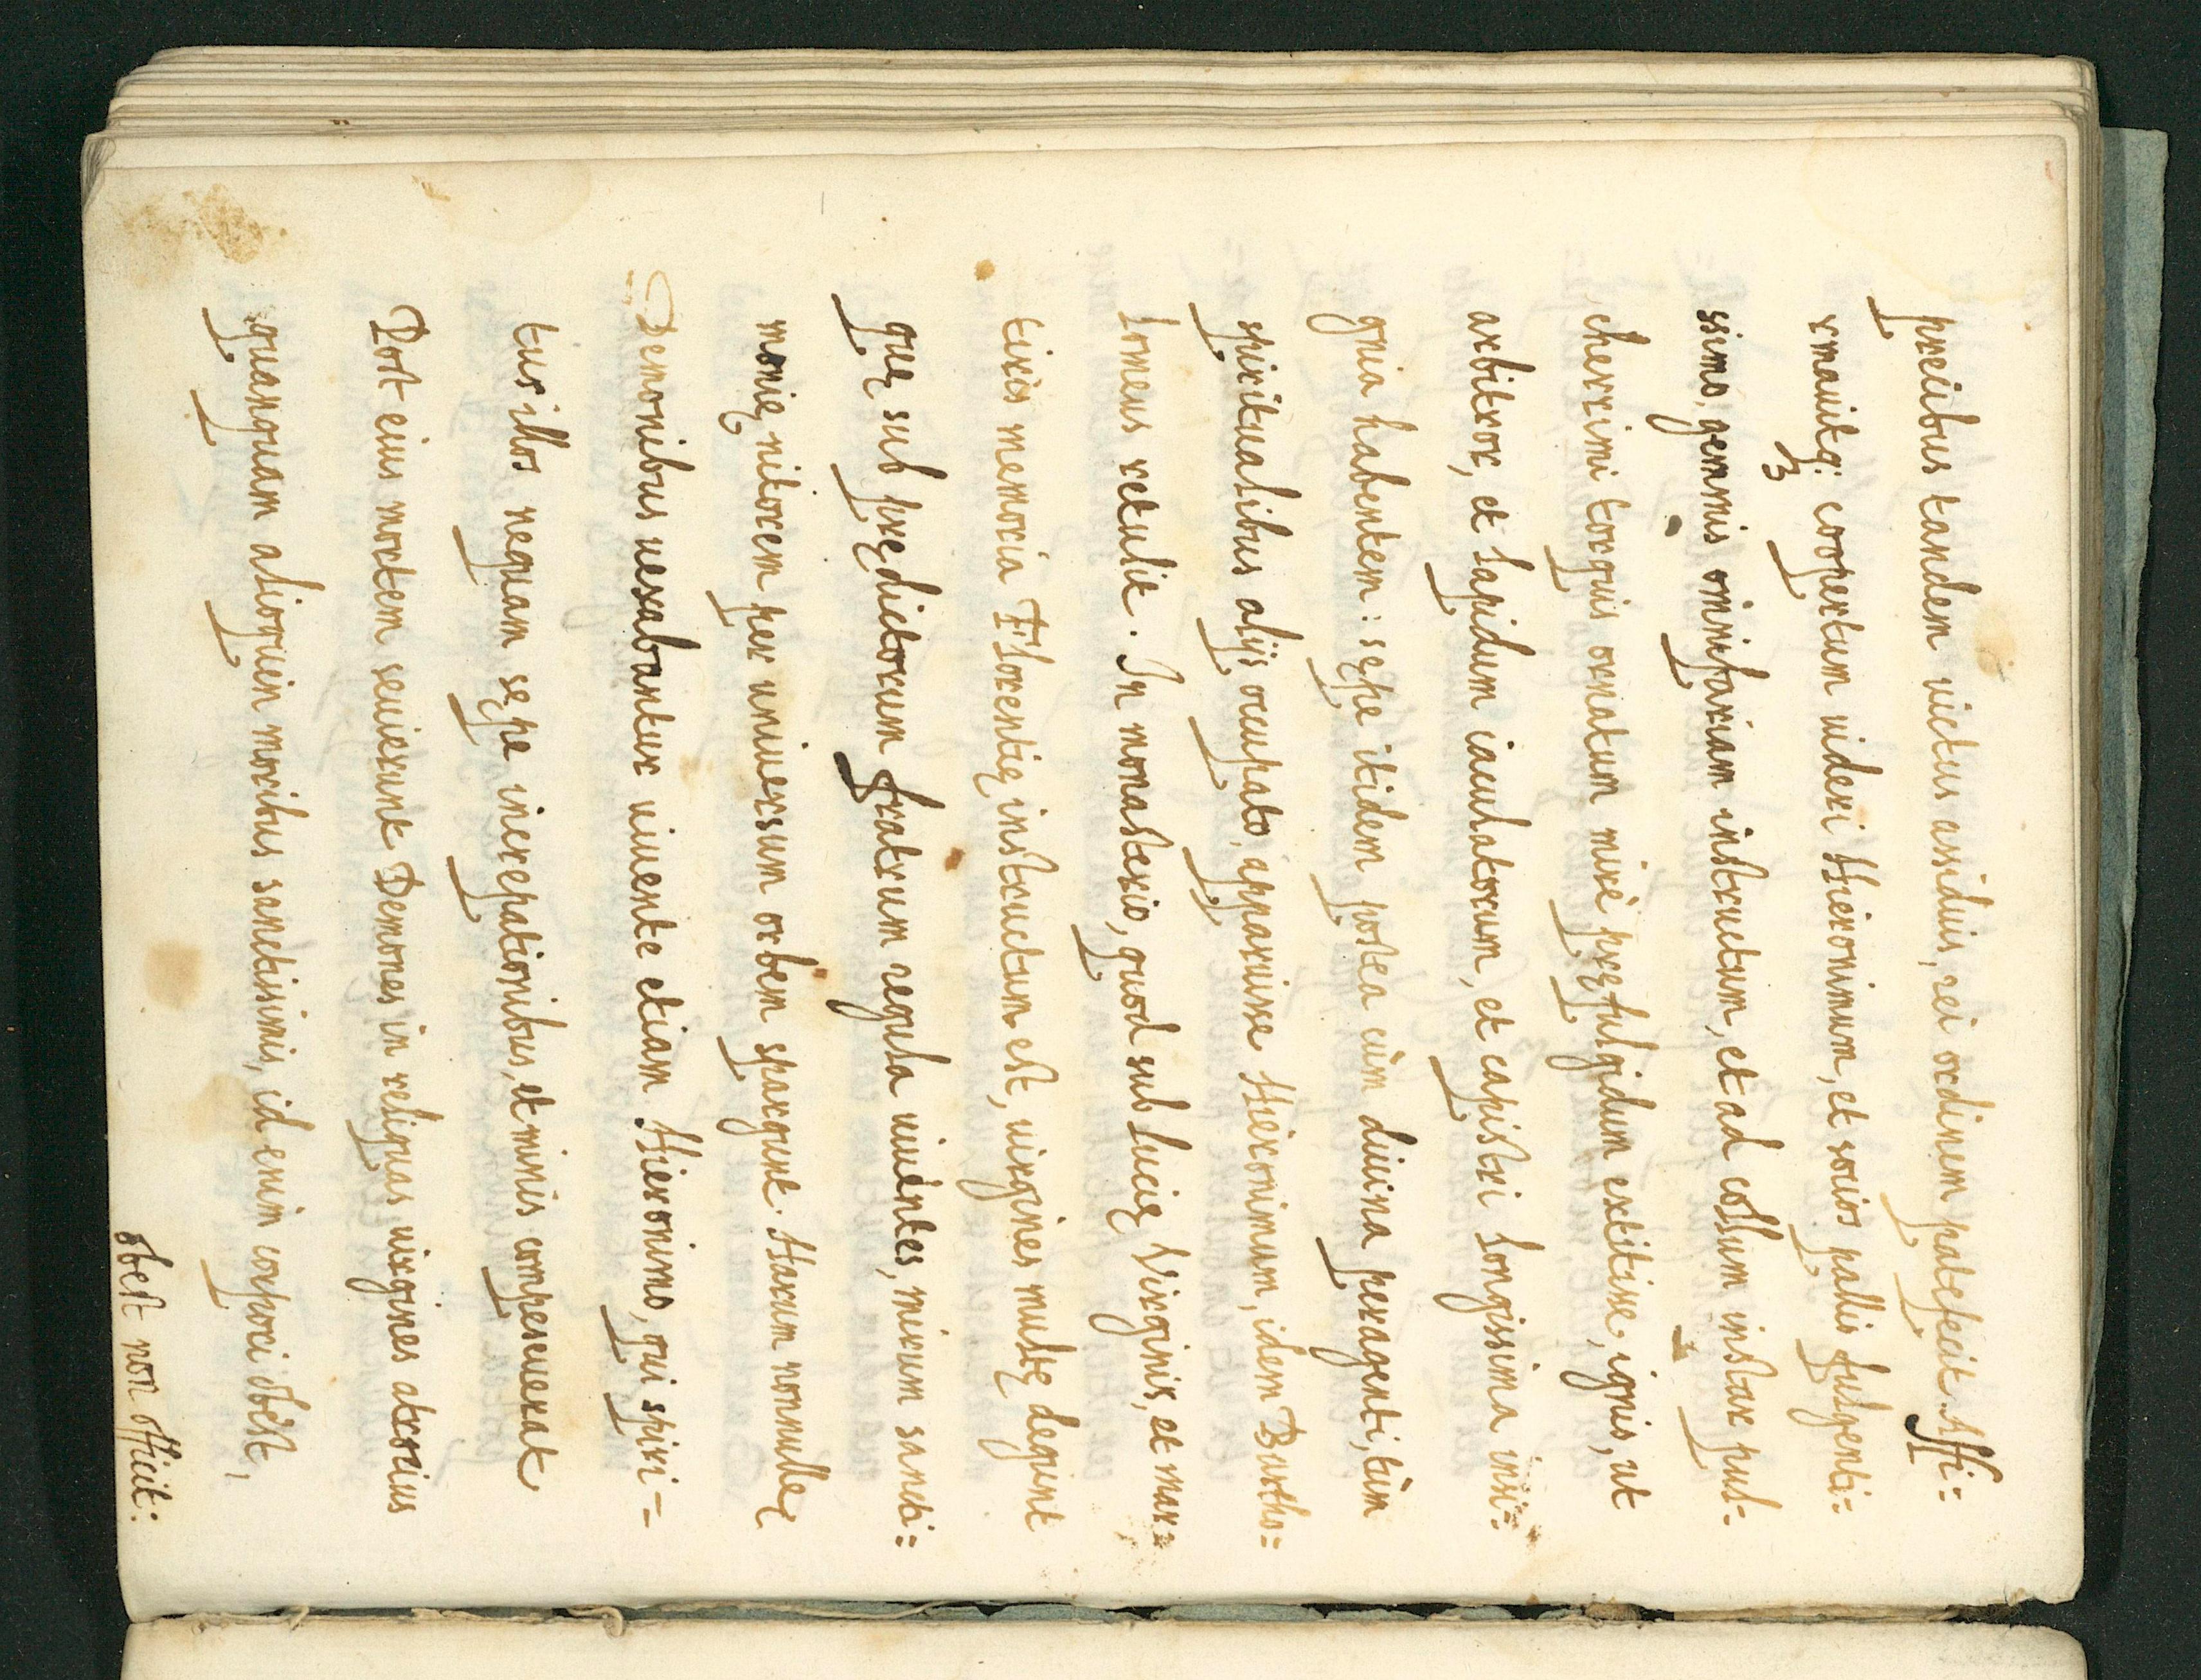 precibus tandem uictus assiduis, rei ordinem patefecit. Affi=
rmauitq; coopertum uideri Hieronimum, et socios pallis fulgenti=
ssimo, gemmis omnifariam instructum, et ad collum instar pul=
cherrimi torquis ornatum mirè pręfulgidum extitisse, ignis, ut
arbitror, et lapidum iaculatorum, et capistri longissima insi=
gnia habentem: sępe itidem postea cùm diuina peragenti, tùm
spiritualibus alijs occupato, apparuisse Hieronimum, idem Bartho=
lomeus retulit. In monasterio, quod sub Lucię Virginis, et mar=
tiris memoria Florentię instructum est, uirgines multę degunt
quę sub prędictorum fratrum regula uiuentes, mirum sancti=
monię nitorem per uniuersum orbem spargunt. Harum nonnullę
Demonibus uexabantur uiuente etiam Hieronimo, qui spiri=
tus illos nequam sępe increpationibus, et minis compescuerat
Post eius mortem seuierunt Demones in reliquas uirgines atrocius
quanquam alioquin moribus sanctissimis, id enim corpori obest,
obest non officit: